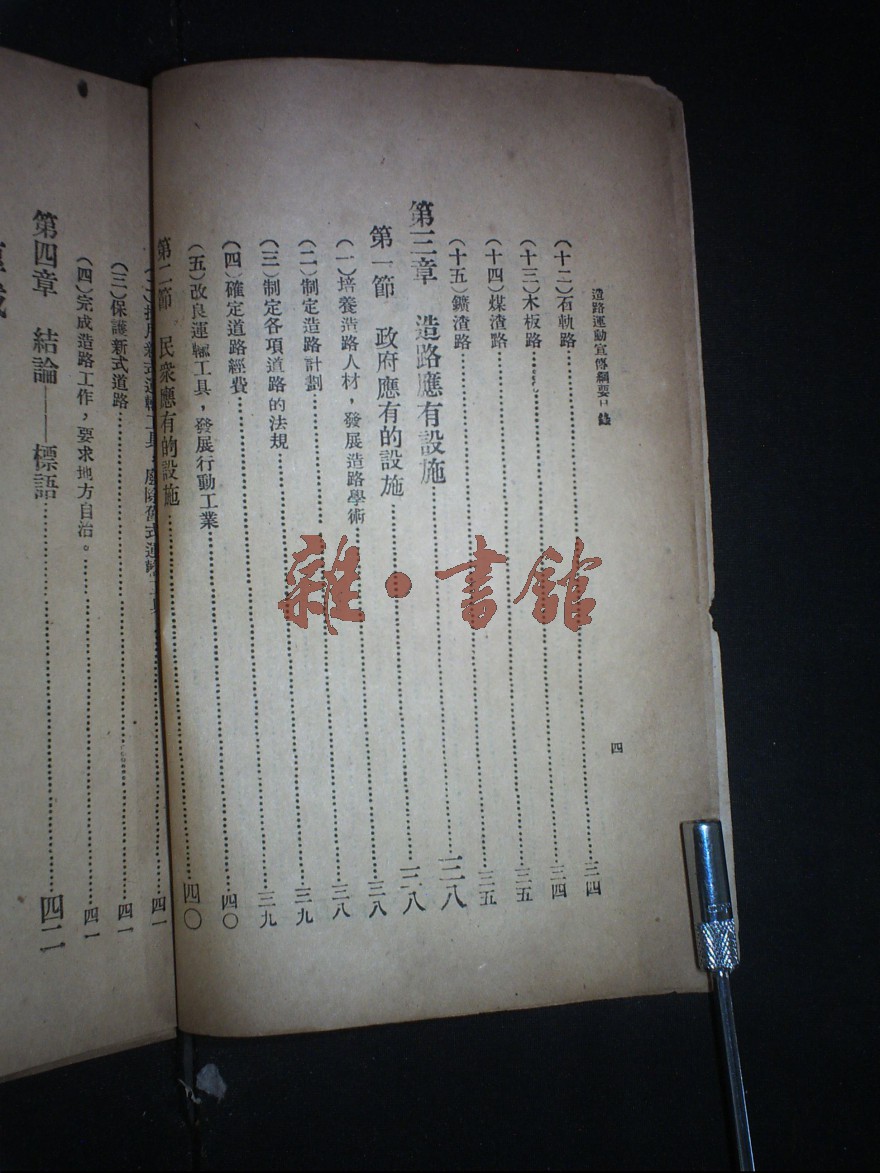 造路運動宣傳綱要目錄
四
(十二)石軌路……三四
(十三)木板路……三四
(十四)煤渣路……三五
(十五)鑛渣路……三五
第三章 造路應有設施……三八
第一節 政府應有的設施……三八
(一)培養造路人材,發展造路學術……三八
(二)制定造路計劃……三八
(三)制定各項道路的法規……三九
(四)確定道路經費……三九
(五)改良運輸工具,發展行動工業……四〇
第二節 民衆應有的設施……四〇
新式運輸工具……四一
(三)保護新式道路……四一
(四)完成造路工作,要求地方自治。……四一
第四章 結論——標語……四二
雜·書館